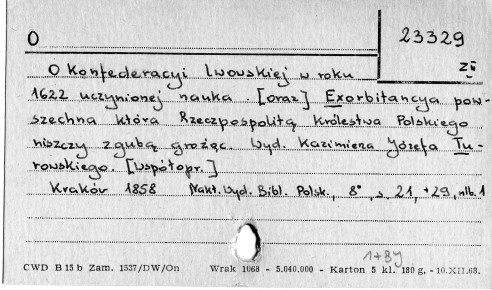 O
23329
ZŚ
O Konfederacyi lwowskiej w roku
1622 uczynionej nauka. [oraz] Exorbitancya pow-
szechna która Rzeczpospolitą Królestwa Polskiego
niszczy zgubą grożąc. Wyd. Kazimierza Józefa Tu-
rowskiego. [współopr.]
Kraków 1858 Nakł. Wyd. Bibl. Polsk., 8°, s. 21, +29, nlb. 1
1+8J
CWD B 15 b Zam. 1537/DW/On Wrak 1068 - 5.040.000 - Karton 5 kl. 180 g, - 10.XII.68.